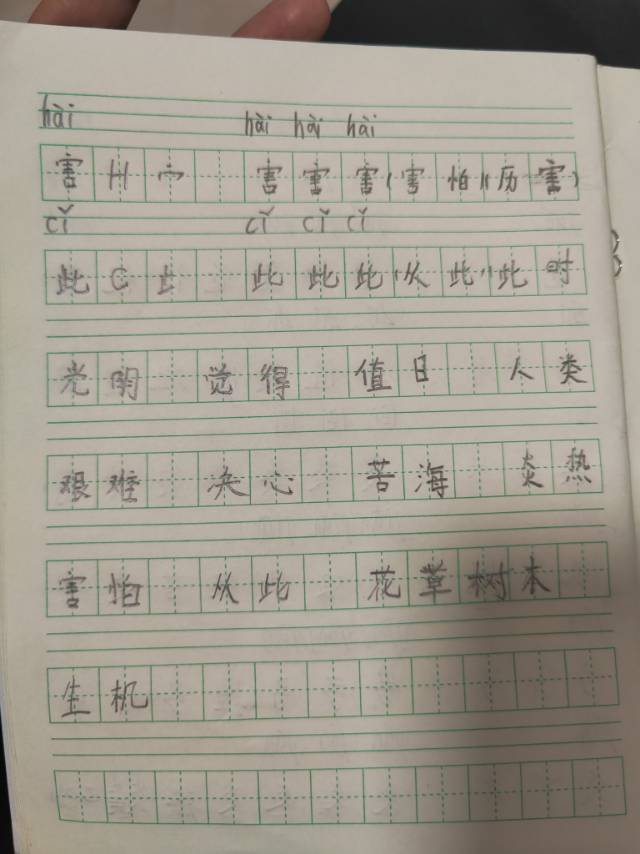 hài hài hài hài
害 H 宀 害 害 害(害怕)(厉害)
cǐ cǐ cǐ cǐ
此 C 止 此 此 此(从此)(此时
光明 觉得 值日 人类
艰难 决心 苦海 炎热
害怕 从此 花草树木
生机